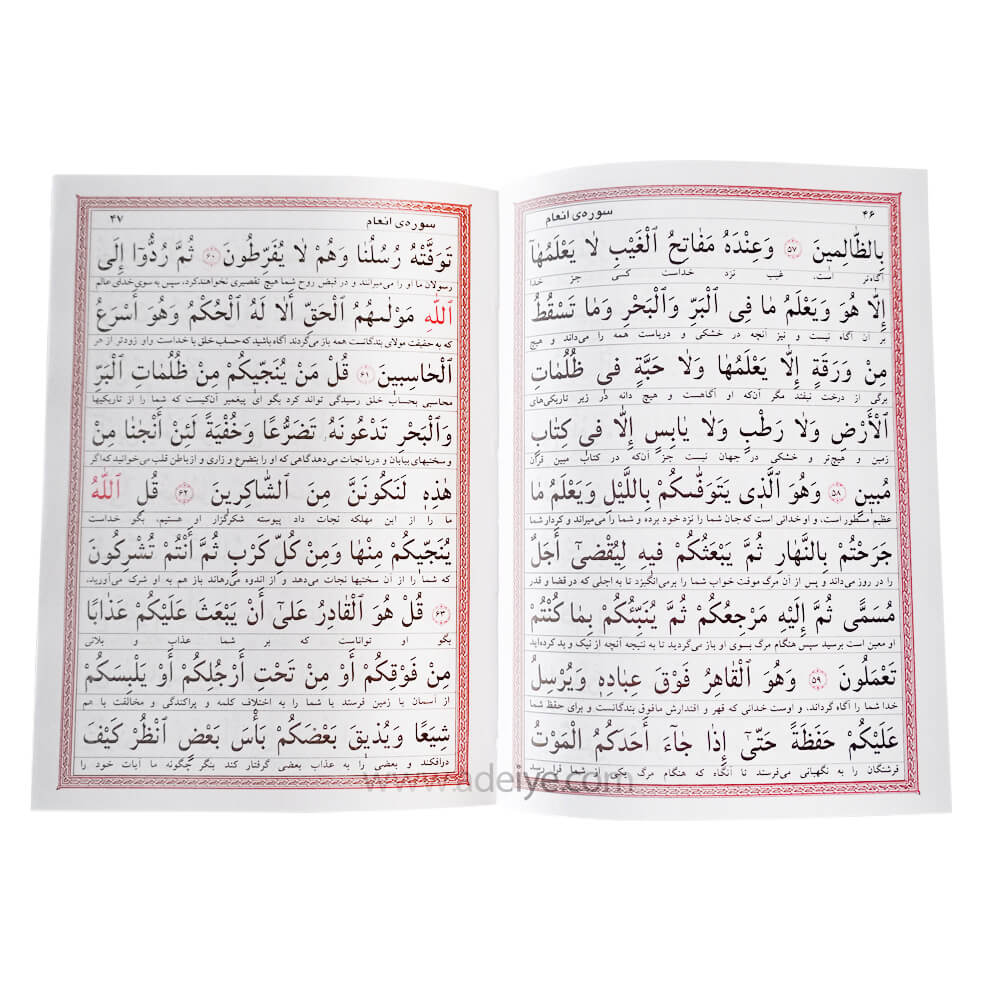 ۴۶ سوره‌ی انعام
بِالظّٰالِمینَ ۵۷ وَعِنْدَهُ مَفٰاتِحُ الْغَیْبِ لٰا یَعْلَمُهٰآ
آگاه‌تر است، غیب نزد خداست کسی جز خدا
إِلّٰا هُوَ وَیَعْلَمُ مٰا فِی الْبَرِّ وَالْبَحْرِ وَمٰا تَسْقُطُ
بر آن آگاه نیست و نیز آنچه در خشکی و دریاست همه را می‌داند و هیچ
مِنْ وَرَقَةٍ إِلّٰا یَعْلَمُهٰا وَلٰا حَبَّةٍ فی ظُلُمٰاتِ
برگی از درخت نیفتد مگر آن‌که او آگاهست و هیچ دانه در زیر تاریکی‌های
الْأَرْضِ وَلٰا رَطْبٍ وَلٰا یٰابِسٍ إِلّٰا فی کِتٰابٍ
زمین و هیچ‌تر و خشکی در جهان نیست جز آن‌که در کتاب مبین قرآن
مُبینٍ ۵۸ وَهُوَ الَّذی یَتَوَفّٰىکُمْ بِاللَّیْلِ وَیَعْلَمُ مٰا
عظیم مسطور است، و او خدائی است که جان شما را نزد خود برده و شما را می‌میراند و کردار شما
جَرَحْتُمْ بِالنَّهٰارِ ثُمَّ یَبْعَثُکُمْ فیهِ لِیُقْضىٰٓ أَجَلٌ
را در روز می‌داند و پس از آن مرگ موقت خواب شما را برمی‌انگیزد تا به اجلی که در قضا و قدر
مُسَمًّى ثُمَّ إِلَیْهِ مَرْجِعُکُمْ ثُمَّ یُنَبِّئُکُمْ بِمٰا کُنْتُمْ
او معین است برسید سپس هنگام مرگ بسوی او باز می‌گردید تا به نتیجه آنچه از نیک و بد کرده‌اید
تَعْمَلُونَ ۵۹ وَهُوَ الْقٰاهِرُ فَوْقَ عِبٰادِهٖ وَیُرْسِلُ
خدا شما را آگاه گرداند، و اوست خدائی که قهر و اقتدارش مافوق بندگانست و برای حفظ شما
عَلَیْکُمْ حَفَظَةً حَتّٰىٓ إِذٰا جٰآءَ أَحَدَکُمُ الْمَوْتُ
فرشتگان را به نگهبانی می‌فرستد تا آنگاه که هنگام مرگ یکی از شما فرا رسد
سوره‌ی انعام ۴۷
تَوَفَّتْهُ رُسُلُنٰا وَهُمْ لٰا یُفَرِّطُونَ ۶۰ ثُمَّ رُدُّوٓا إِلَى
رسولان ما او را می‌میرانند و در قبض روح شما هیچ تقصیری نخواهندکرد، سپس به سوی خدای عالم
اللّٰهِ مَوْلٰىهُمُ الْحَقِّ أَلٰا لَهُ الْحُکْمُ وَهُوَ أَسْرَعُ
که به حقیقت مولای بندگانست همه باز می‌گردند آگاه باشید که حساب خلق با خداست و او زودتر از هر
الْحٰاسِبینَ ۶۱ قُلْ مَنْ یُنَجّیکُمْ مِنْ ظُلُمٰاتِ الْبَرِّ
محاسبی بحساب خلق رسیدگی تواند کرد بگو ای پیغمبر آن‌کیست که شما را از تاریکیها
وَالْبَحْرِ تَدْعُونَهُ تَضَرُّعًا وَخُفْیَةً لَئِنْ أَنْجٰنٰا مِنْ
و سختیهای بیابان و دریا نجات می‌دهد گاهی که او را بتضرع و زاری و از باطن قلب می‌خوانید که‌اگر
هٰذِهٖ لَنَکُونَنَّ مِنَ الشّٰاکِرینَ ۶۲ قُلِ اللّٰهُ
ما را از این مهلکه نجات داد پیوسته شکرگزار او هستیم، بگو خداست
یُنَجّیکُمْ مِنْهٰا وَمِنْ کُلِّ کَرْبٍ ثُمَّ أَنْتُمْ تُشْرِکُونَ
که شما را از آن سختیها نجات می‌دهد و از اندوه می‌رهاند باز هم به او شرک می‌آورید،
۶۳ قُلْ هُوَ الْقٰادِرُ عَلىٰٓ أَنْ یَبْعَثَ عَلَیْکُمْ عَذٰابًا
بگو او تواناست که بر شما عذاب و بلائی
مِنْ فَوْقِکُمْ أَوْ مِنْ تَحْتِ أَرْجُلِکُمْ أَوْ یَلْبِسَکُمْ
از آسمان یا زمین فرستد یا شما را به اختلاف کلمه و پراکندگی و مخالفت با هم
شِیَعًا وَیُذیقَ بَعْضَکُمْ بَأْسَ بَعْضٍ انْظُرْ کَیْفَ
درافکند و بعضی را به عذاب بعضی گرفتار کند بنگر چگونه ما آیات خود را
www.adeiye.com